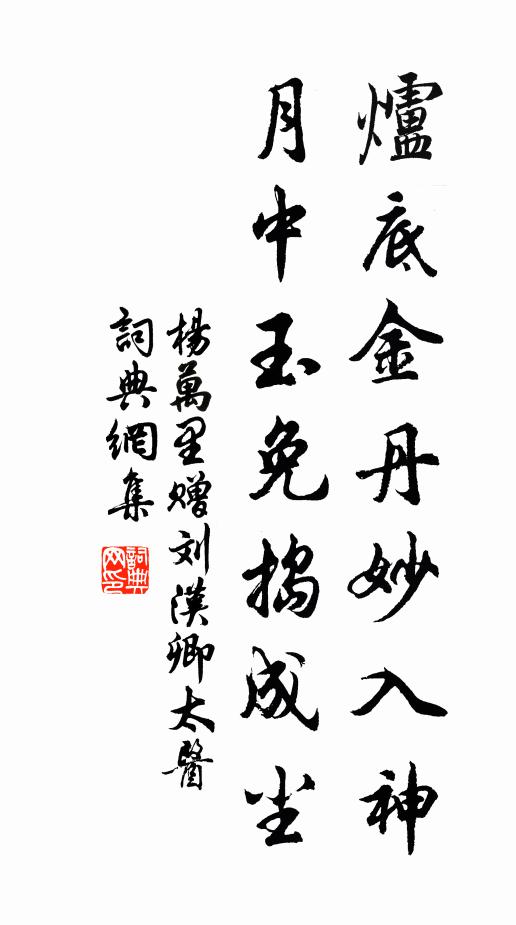 爐底金丹妙入神
月中玉兔搗成尘
楊萬里贈刘漢卿太醫
詞典網集
詞典網印